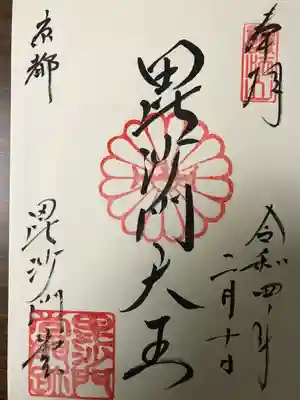 奉拝
令和四年
二月十日
毘沙門天王
京都
毘沙門堂
毘沙門
堂跡